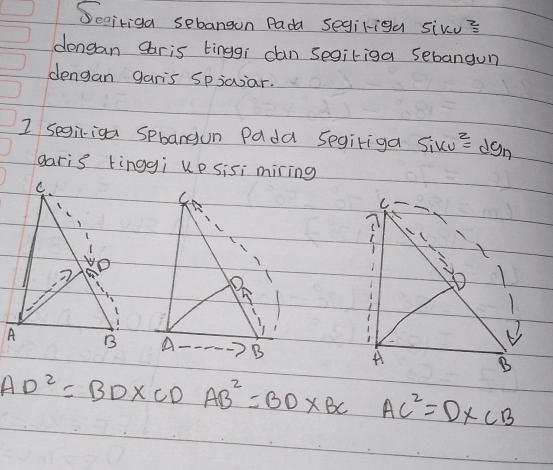 Segitiga sebangun pada segitiga siku²
dengan garis tinggi dan segitiga sebangun
dengan garis sejajar.
I segitiga sebangun pada segitiga siku² dgn
garis tinggi ke sisi miring
C C C
D D D
A B A B A B
AD² = BD x CD AB² = BD x BC AC² = D x CB